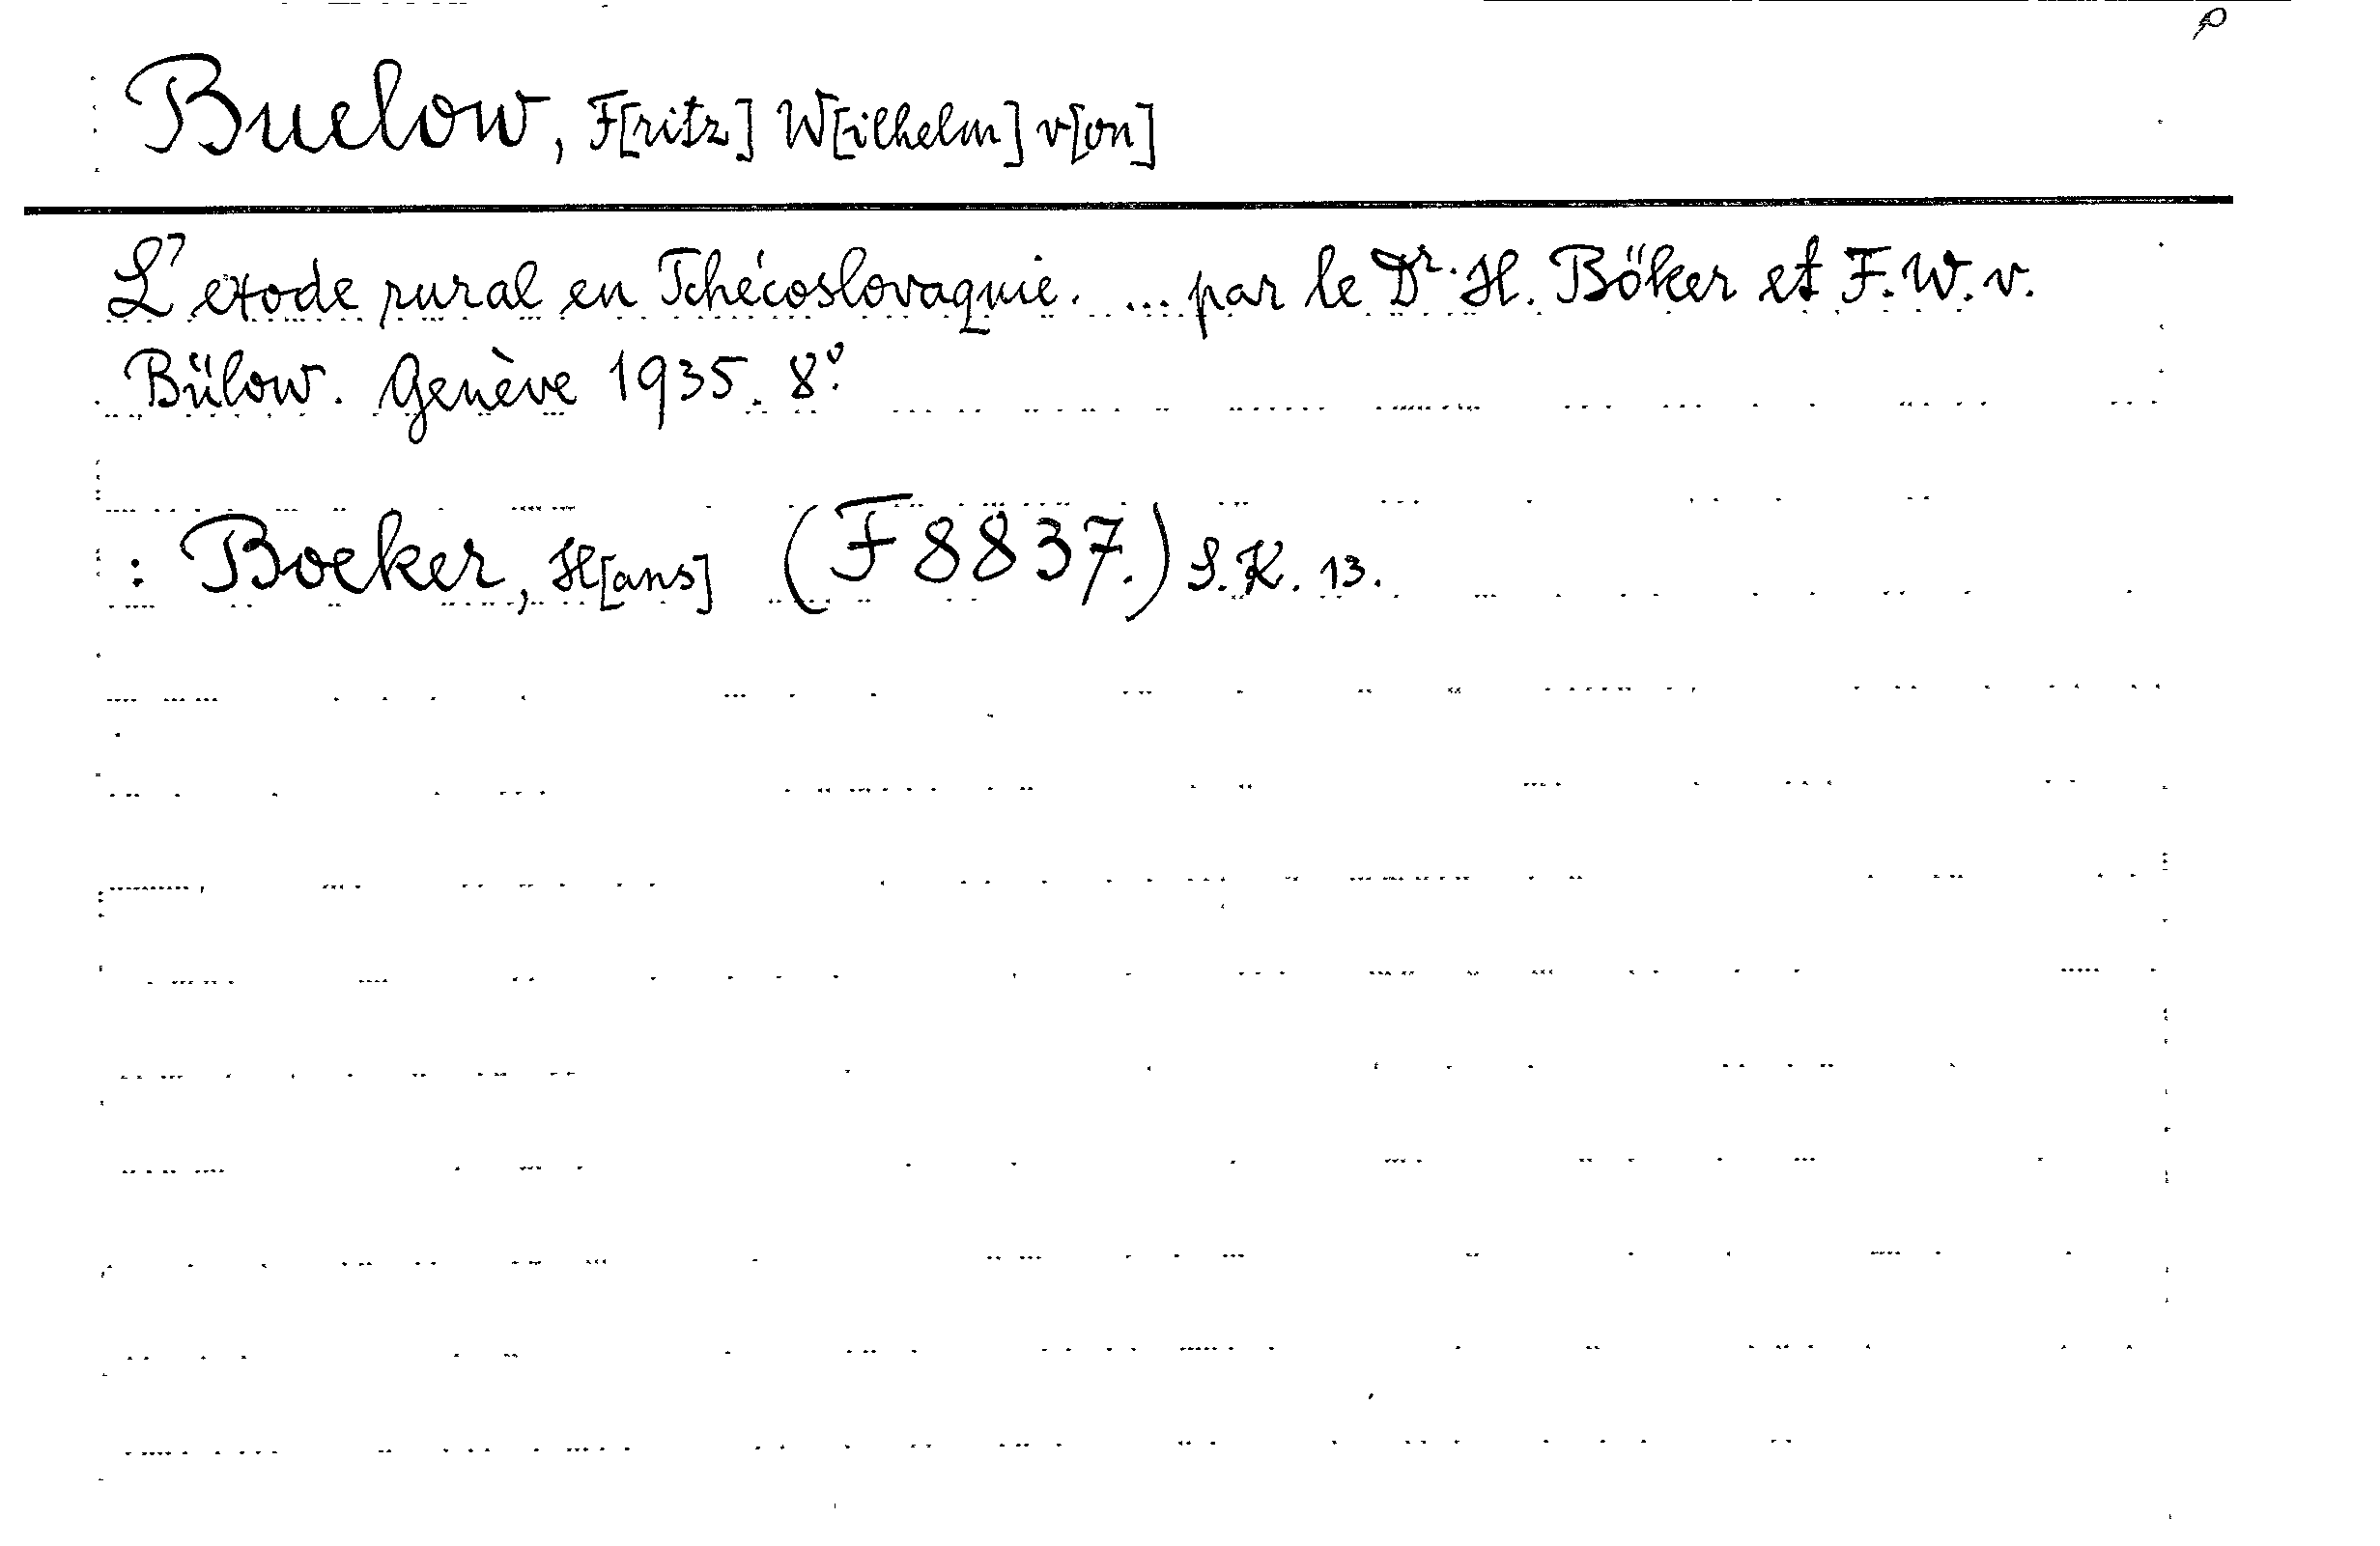 Buelow, F[ritz] W[ilhelm] v[on]
L'exode rural en Tchécoslovaquie. ... par le Dr. H. Böker et F. W. v.
Bülow. Genève 1935. 8º.
: Boeker, H[ans] (F 8837.) S.K. 13.